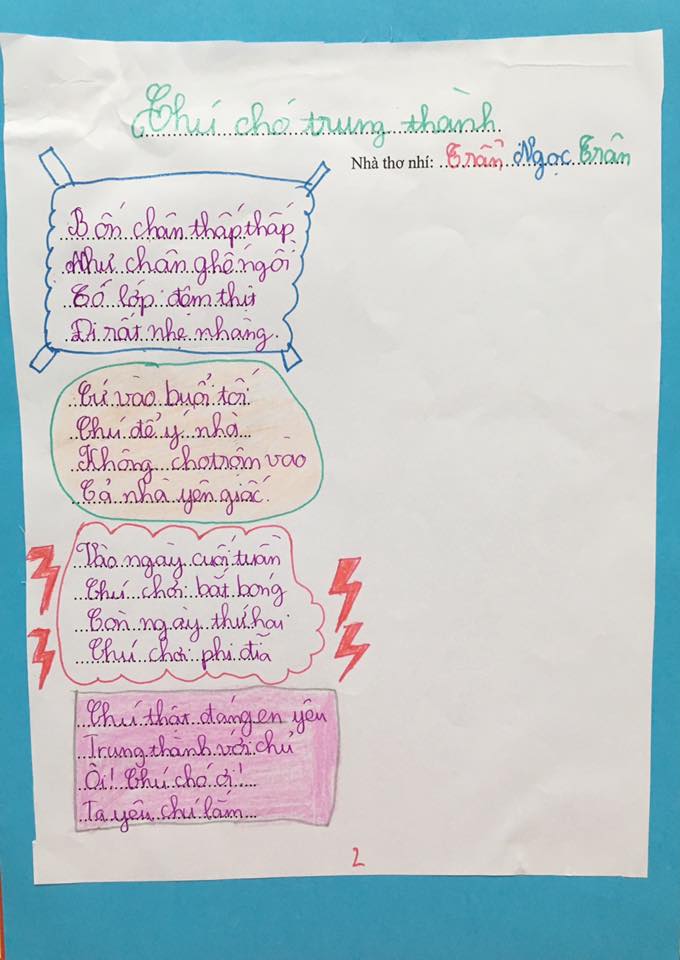 Chú chó trung thành
Nhà thơ nhí: Trần Ngọc Trân
Bốn chân thấp thấp
Như chân ghế ngồi
Có lớp đệm thịt
Đi rất nhẹ nhàng.
Cứ vào buổi tối
Chú để ý nhà
Không cho trộm vào
Cả nhà yên giấc.
Vào ngày cuối tuần
Chú chơi bắt bóng
Còn ngày thứ hai
Chú chơi phi đĩa
Chú thật đáng en yên
Trung thành với chủ
Ôi! Chú chó ơi!
Ta yêu chú lắm
2